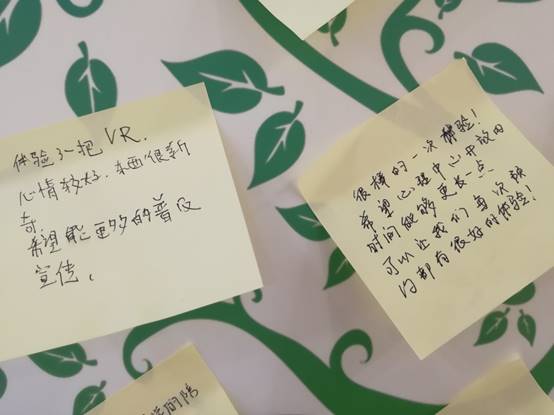 体验了一把VR.
心情较好.东西很新
奇
希望能更多的普及
宣传.
很棒的一次体验!
希望心理中心开放的
时间能够更长一点
可以让我们每次预
约都有很好的体验!